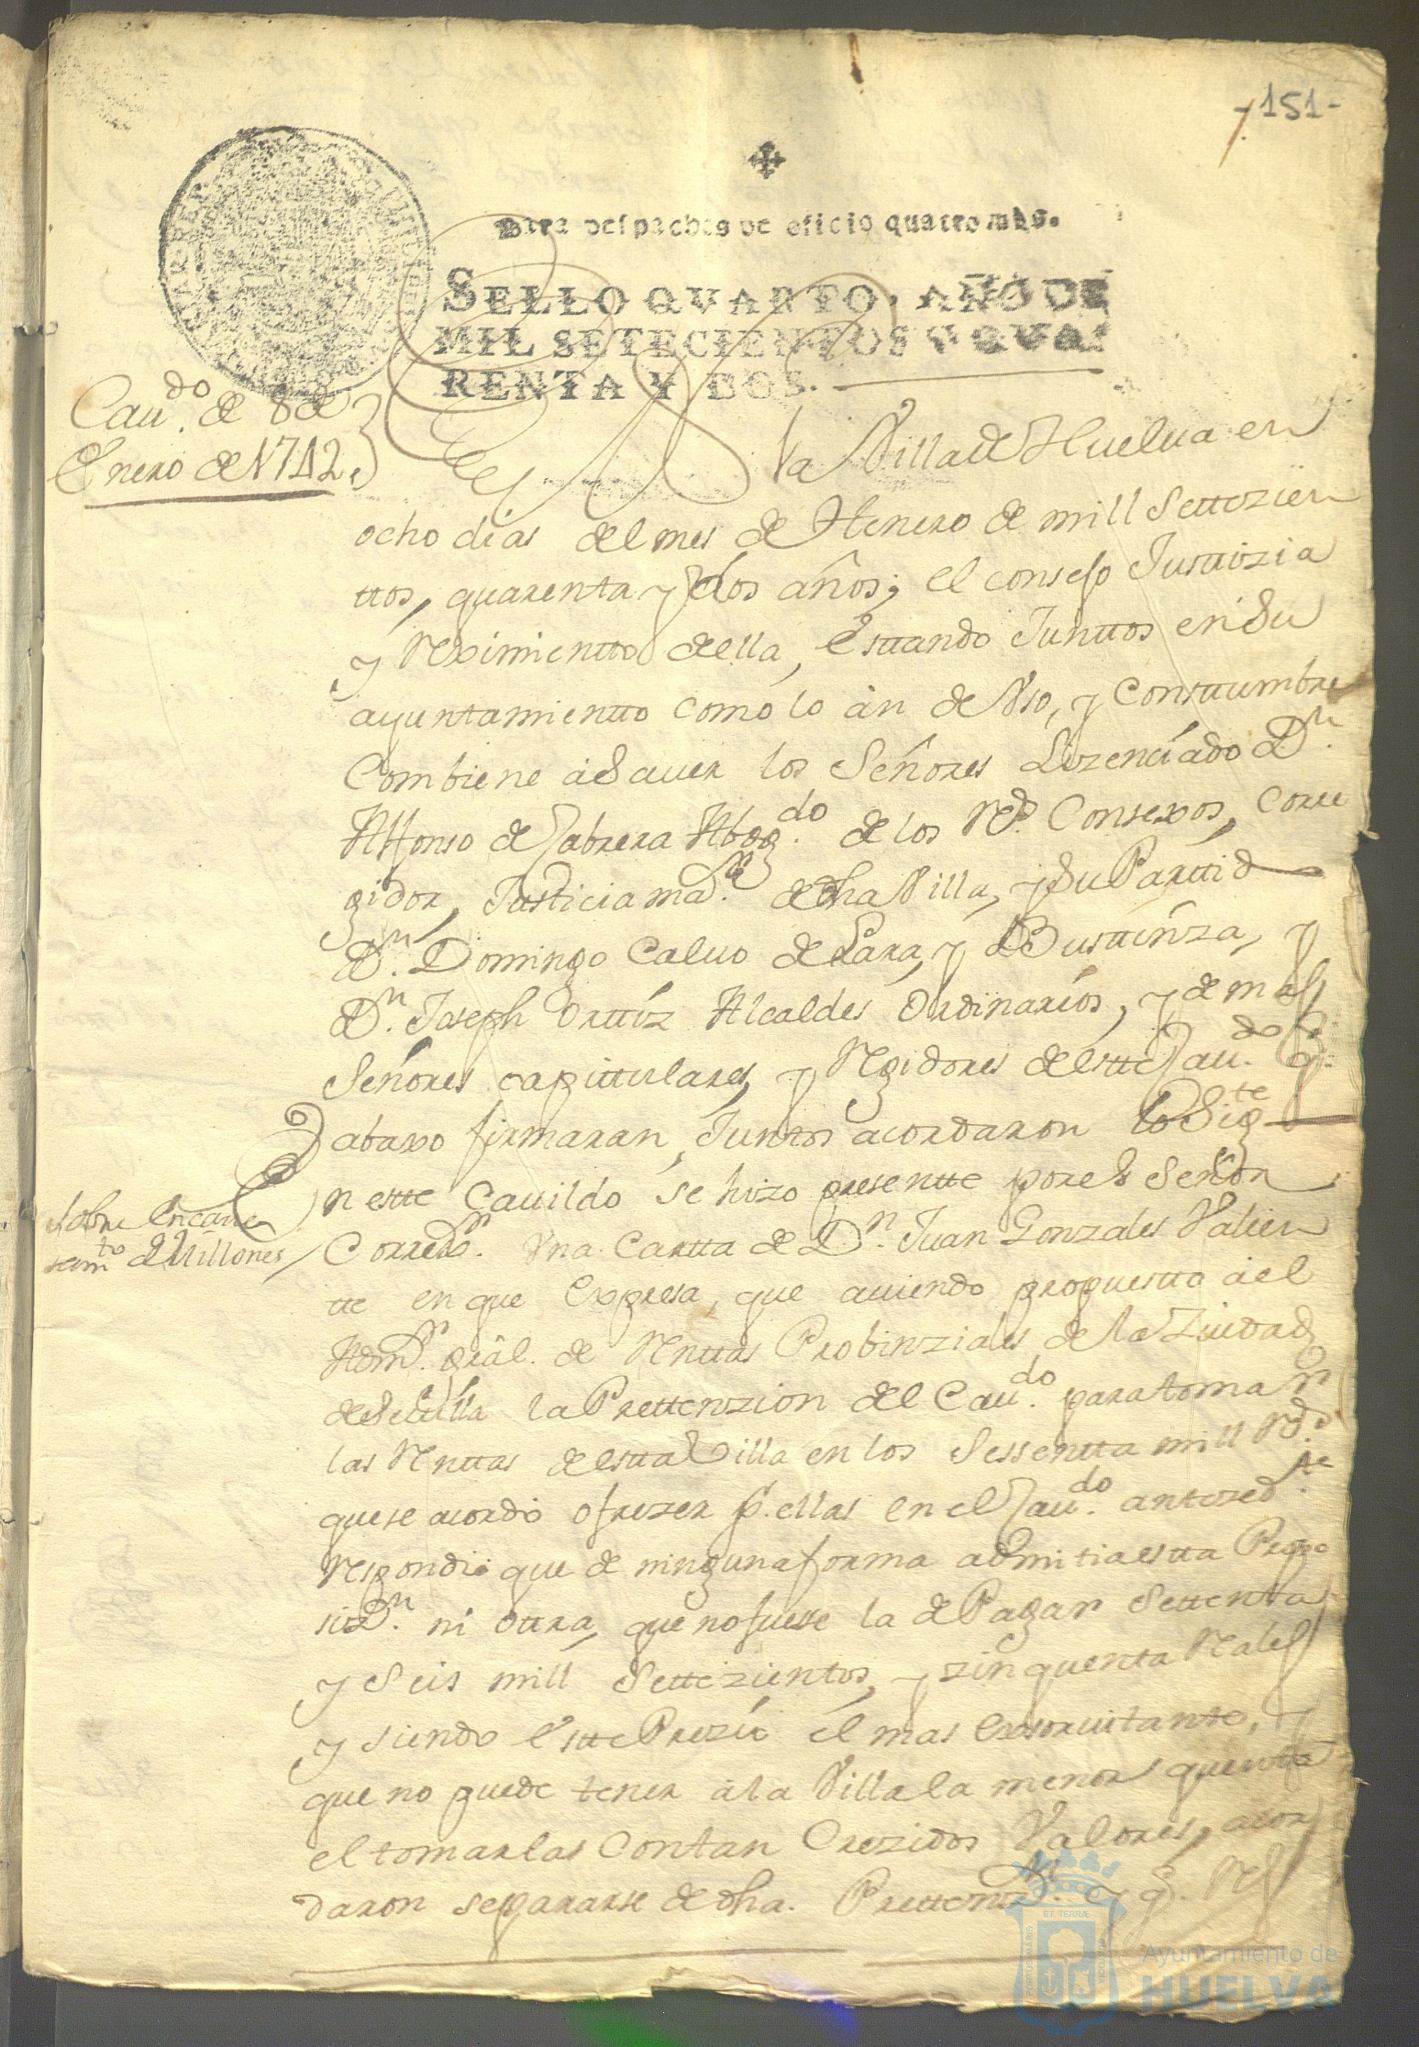 -151-
Para despachos de oficio quatro mrs.
SELLO QVARTO, AÑO DE
MIL SETECIENTOS Y QVA-
RENTA Y DOS.
Cau.do de 8 de
Enero de 1742.
la Villa de Huelua en
ocho dias del mes de Henero de mill Settezien
ttos, quarenta y dos años; el consejo Justtizia
y Reximientto della, esttando Junttos en Su
ayuntamientto como lo àn de Vso, y Consttumbre
Combiene àSauer los Señores Lizenciado Dn.
Alfonso de Cabrera Abog.do de los Rs. Consexos, Corre
gidor, Justicia ma.r de dha Villa, y Su Parttid
Dn. Domingo Caluo de Lara, y Busttinza, y
Dn. Joseph Orttiz Alcaldes Ordinarios, y demas
Señores capittulares, y Rexidores destte Cau.do q.
abaxo firmaran, Juntos acordaron lo Sig.te
En estte Cauildo se hizo presentte por el Señor
Sobre Encaue
zam.to de Millones
Correx.r Vna Cartta de Dn. Juan Gonzales Valien
tte en que Expresa, que auiendo propuestto àel
Adm.r gràl. de Renttas Probinziales de la Ziudad
de Seuilla la Prettenzion del Cau.do para tomar
las Renttas de estta Villa en los Sessentta mill Rs.
que se acordò ofrezer p. ellas en el Cau.do antezed.te
respondiò que de ninguna forma admitia estta Propo
siz.n ni ottra, que no fuese la de Pagar Settenta
y Seis mill Settezientos, y zinquenta Rales
y siendo estte Prezio el mas exsoruitante, y
que no puede tener à la Villa la menor quentta
el tomarlas con tan Crezidos Valores, acor
daron separarse de dha. Prettenz.n y q. Rs
Ayuntamiento de
HUELVA